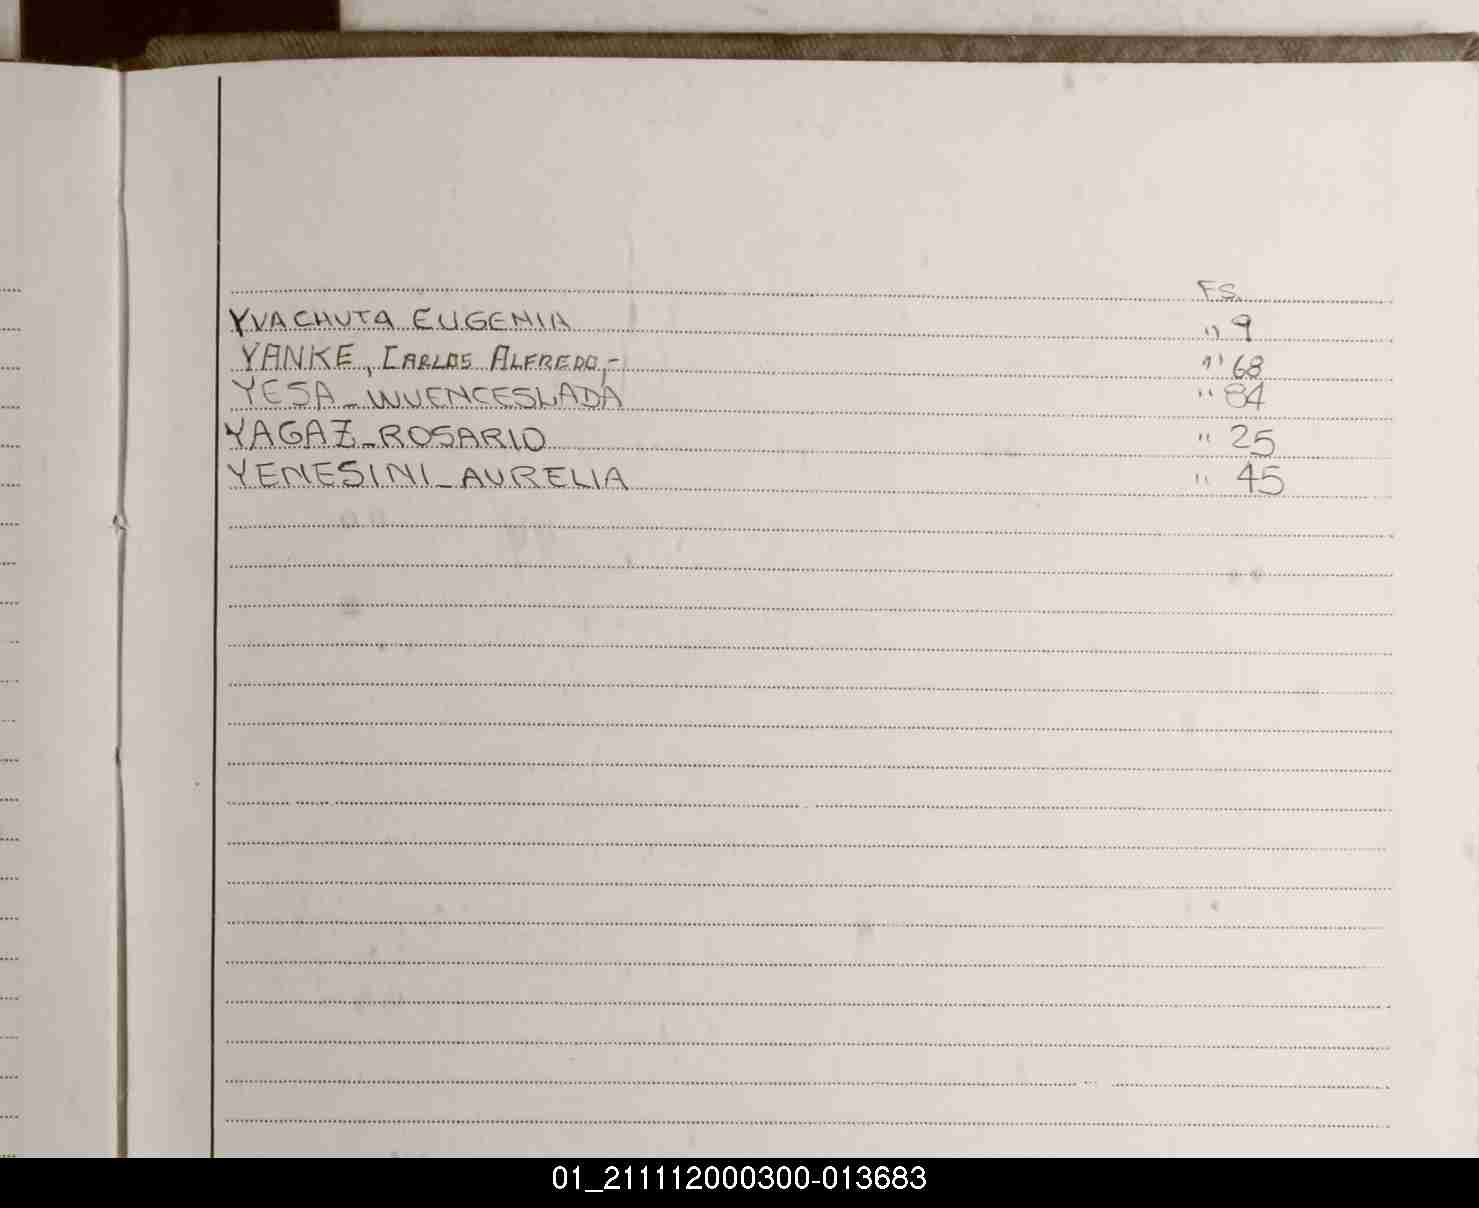 FS.
YVACHUTA EUGENIA " 9
YANKE, CARLOS ALFREDO,- " 68
YESA_WUENCESLADA " 84
YAGAZ_ROSARIO " 25
YENESINI_AURELIA " 45
01_211112000300-013683